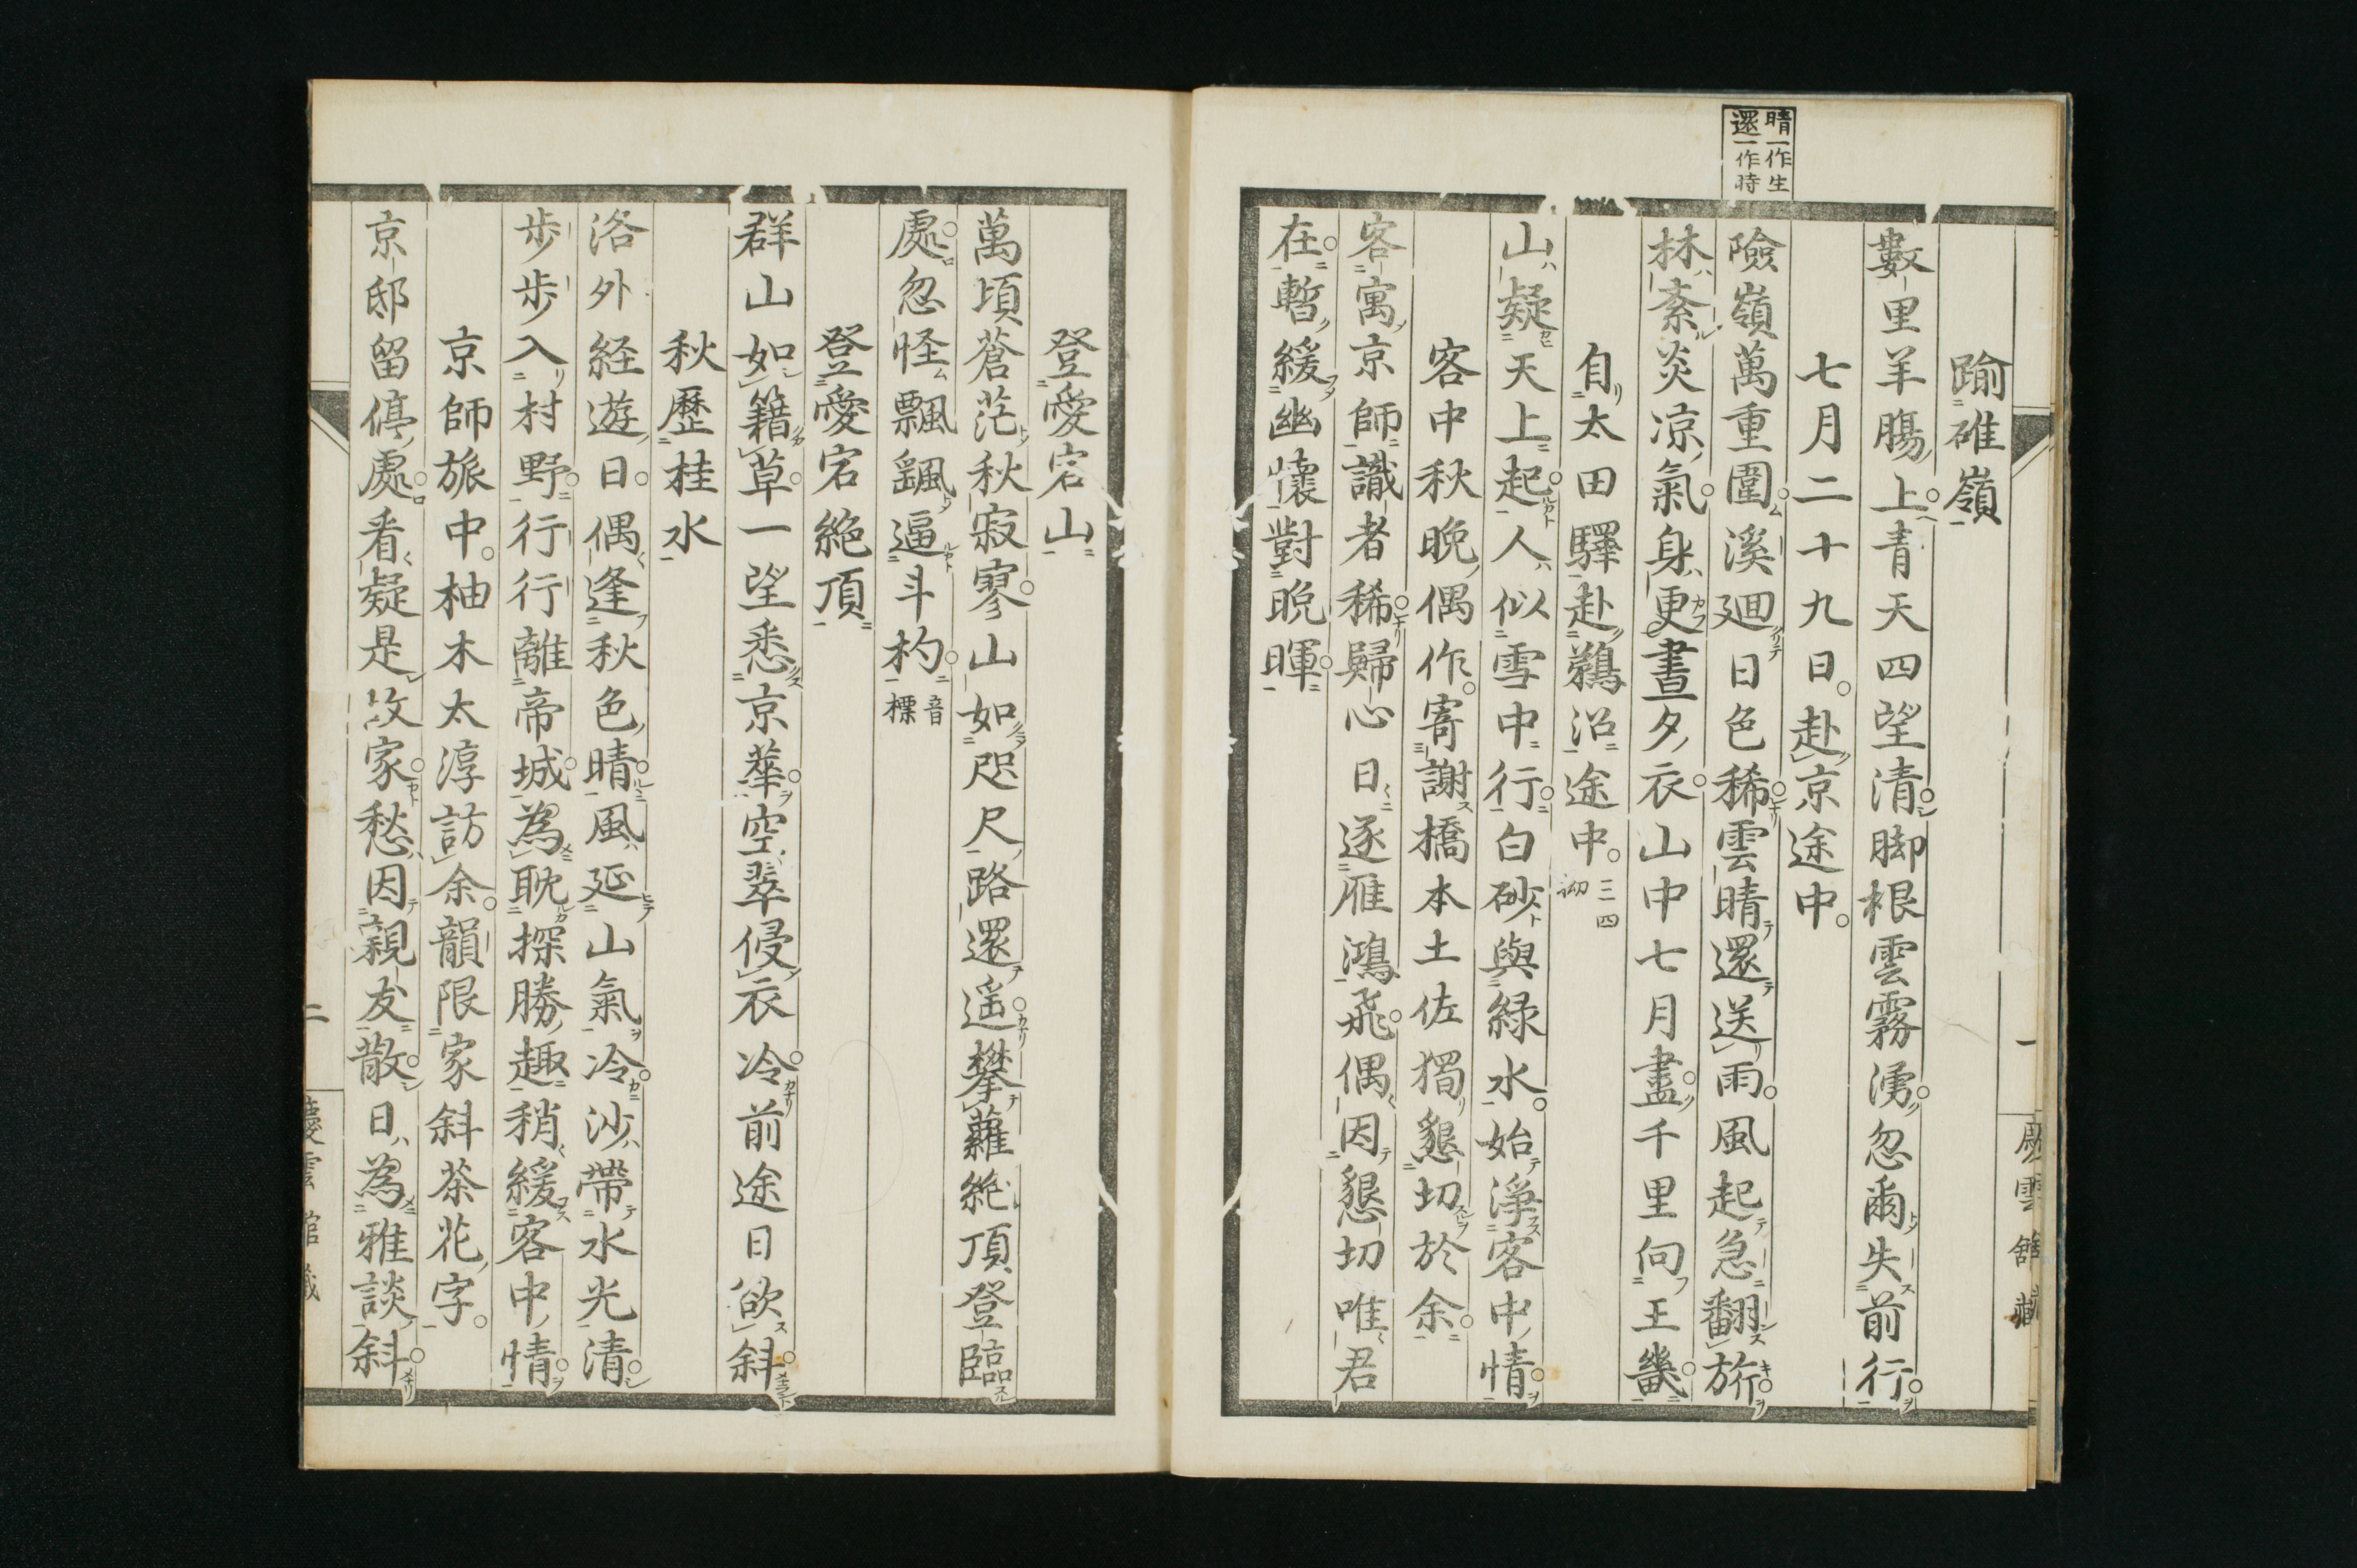 晴一作生
還一作時
踰碓嶺
數里羊腸上青天四望清脚根雲霧湧忽爾失前行
七月二十九日赴京途中
險嶺萬重圍溪廻日色稀雲晴還送雨風起急翻旂
林紊炎凉氣身更晝夕衣山中七月盡千里向王畿
自太田驛赴鵜沼途中三四初
山疑天上起人似雪中行白砂與緑水始淨客中情
客中秋晩偶作寄謝橋本土佐獨懇切於余
客寓京師識者稀歸心日逐雁鴻飛偶因懇切唯君
在暫緩幽懐對晩暉
一
慶雲舘藏
登愛宕山
萬頃蒼茫秋寂寥山如咫尺路還遥攀蘿絶頂登臨
處忽怪飄颻逼斗杓音標
登愛宕絶頂
群山如籍草一望悉京華空翠侵衣冷前途日欲斜
秋歴桂水
洛外経遊日偶逢秋色晴風延山氣冷沙帶水光清
歩歩入村野行行離帝城為耽探勝趣稍緩客中情
京師旅中柚木太淳訪余韻限家斜茶花字
京邸留停處看疑是故家愁因親友散日為雅談斜
二
慶雲舘藏